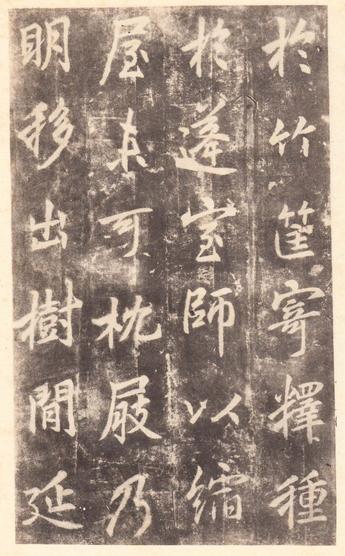 於竹筐寄釋種
於蓬室師以繻
屋未可枕屐乃
明移出樹間延